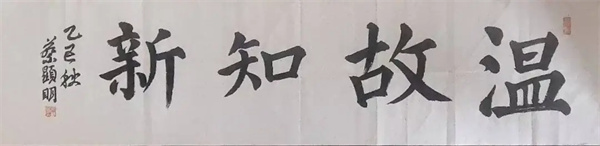 温故知新
乙巳秋
蔡顕明